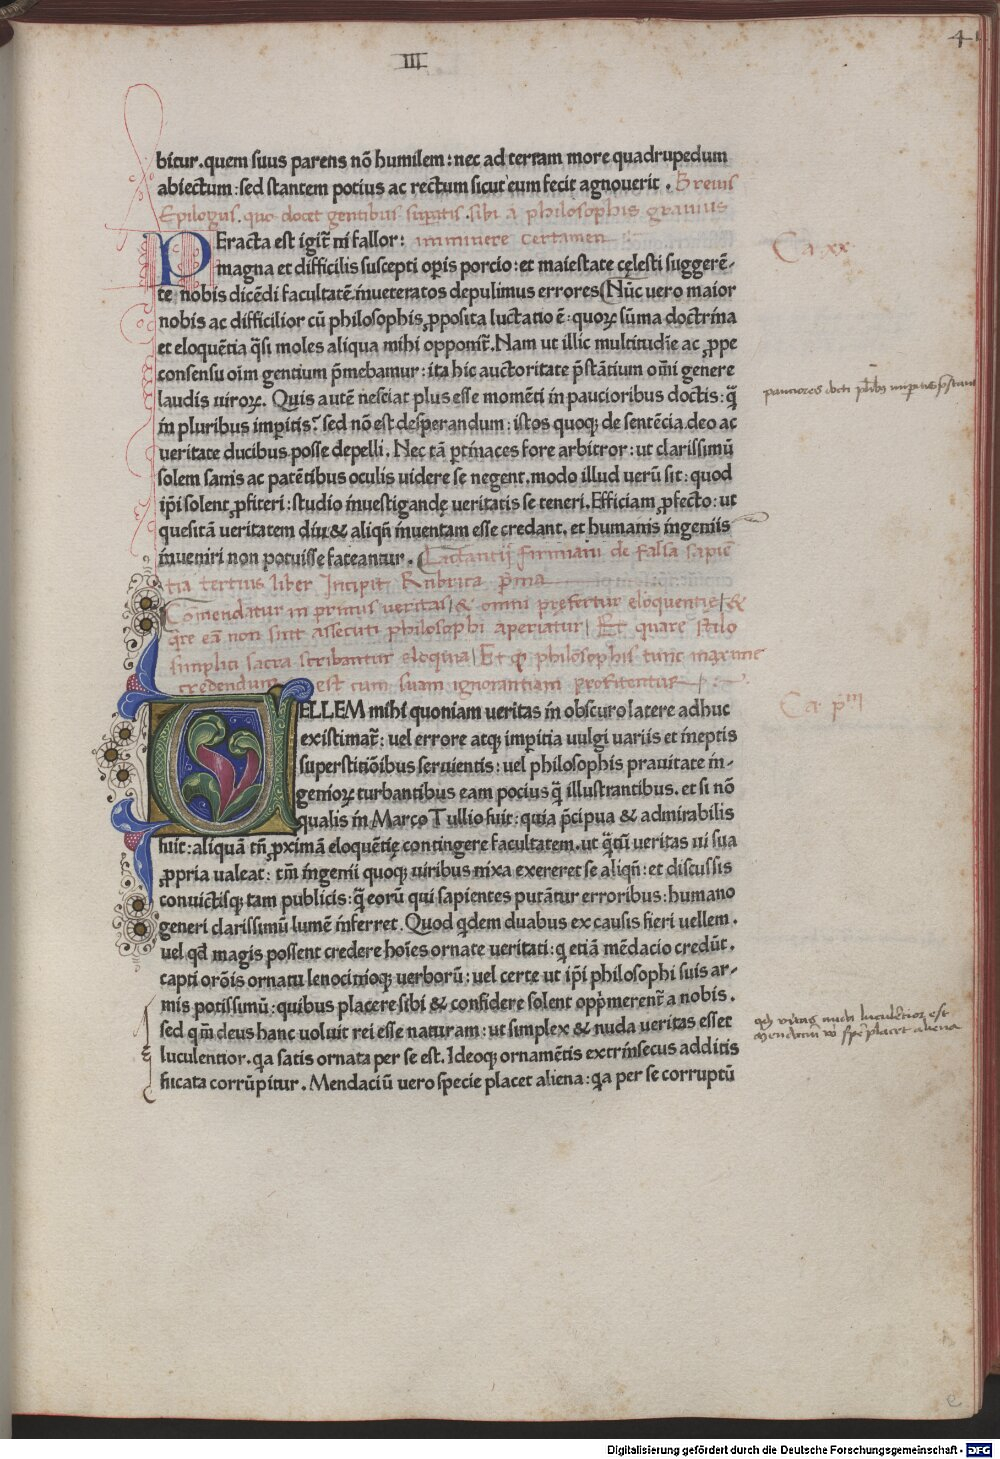 III
4
bitur.quem suus parens nō humilem: nec ad terram more quadrupedum
abiectum: sed stantem potius ac rectum sicut eum fecit agnouerit. Breuis
Epilogus. quo docet gentibus sup̄atis.sibi a philosophis grauius
PEracta est igit̃ ni fallor: imminere certamen
Ca xx
magna et difficilis suscepti opis porcio: et maiestate cęlesti suggerē-
te nobis dicēdi facultatē.inueteratos depulimus errores(Nūc uero maior
nobis ac difficilior cū philosophis ꝓposita luctatio ē: quoꝝ sūma doctrina
et eloquētia q̃si moles aliqua mihi opponit̃. Nam ut illic multitudīe ac ꝓpe
consensu oīm gentium p̄mebamur: ita hic auctoritate p̄stātium om̄i genere
laudis uiroꝝ. Quis autē nesciat plus esse momēti in paucioribus doctis: q̃
in pluribus imp̱itis? sed nō est desperandum: istos quoqꝫ de sentēcia deo ac
ueritate ducibus posse depelli. Nec tā ꝑtinaces fore arbitror: ut clarissimū
solem sanis ac patētibus oculis uidere se negent. modo illud uerū sit: quod
ip̄i solent ꝓfiteri: studio inuestigandę ueritatis se teneri. Efficiam ꝓfecto: ut
quesitā ueritatem diu & aliqn̄ inuentam esse credant. et humanis ingeniis
inueniri non potuisse fateantur. (Lactantij firmiani de falsa sapiē
tia tertius liber Incipit Rubrica p̄ma
Comendatur in primus ueritas/& omni pręfertur eloquentię/&
q̄re eā non sint assecuti philosophi aperiatur/Et quare stilo
simplici sacra scribantur eloquia/Et qđ philosophis tunc maxime
credendum est cum suam ignorantiam profitentur
Ca p̄m
UELLEM mihi quoniam ueritas in obscuro latere adhuc
existimat̃: uel errore atqꝫ imp̱itia uulgi uariis et ineptis
superstitiōibus seruientis: uel philosophis prauitate in-
genioꝝ turbantibus eam pocius q̃ illustrantibus. et si nō
qualis in Marco Tullio fuit: quia p̄cipua & admirabilis
fuit: aliquā tn̄ ꝓximā eloquētię contingere facultatem. ut q̃tū ueritas ui sua
ꝓpria ualeat: tm̄ ingenii quoqꝫ uiribus nixa exereret se aliqn̄: et discussis
conuictisqꝫ tam publicis: q̃ eorū qui sapientes putātur erroribus: humano
generi clarissimū lumē inferret. Quod q̇dem duabus ex causis fieri uellem.
uel qđ magis possent credere hoīes ornate ueritati: q etiā mēdacio credūt.
capti orōis ornatu lenocinioqꝫ uerborū: uel certe ut ip̄i philosophi suis ar-
mis potissimū: quibus placere sibi & confidere solent opp̄merent̃ a nobis.
sed qm̄ deus hanc uoluit rei esse naturam: ut simplex & nuda ueritas esset
luculentior. qa satis ornata per se est. Ideoqꝫ ornamētis extrinsecus additis
fucata corrūpitur. Mendaciū uero specie placet aliena: qa per se corruptū
e
Digitalisierung gefördert durch die Deutsche Forschungsgemeinschaft - DFG